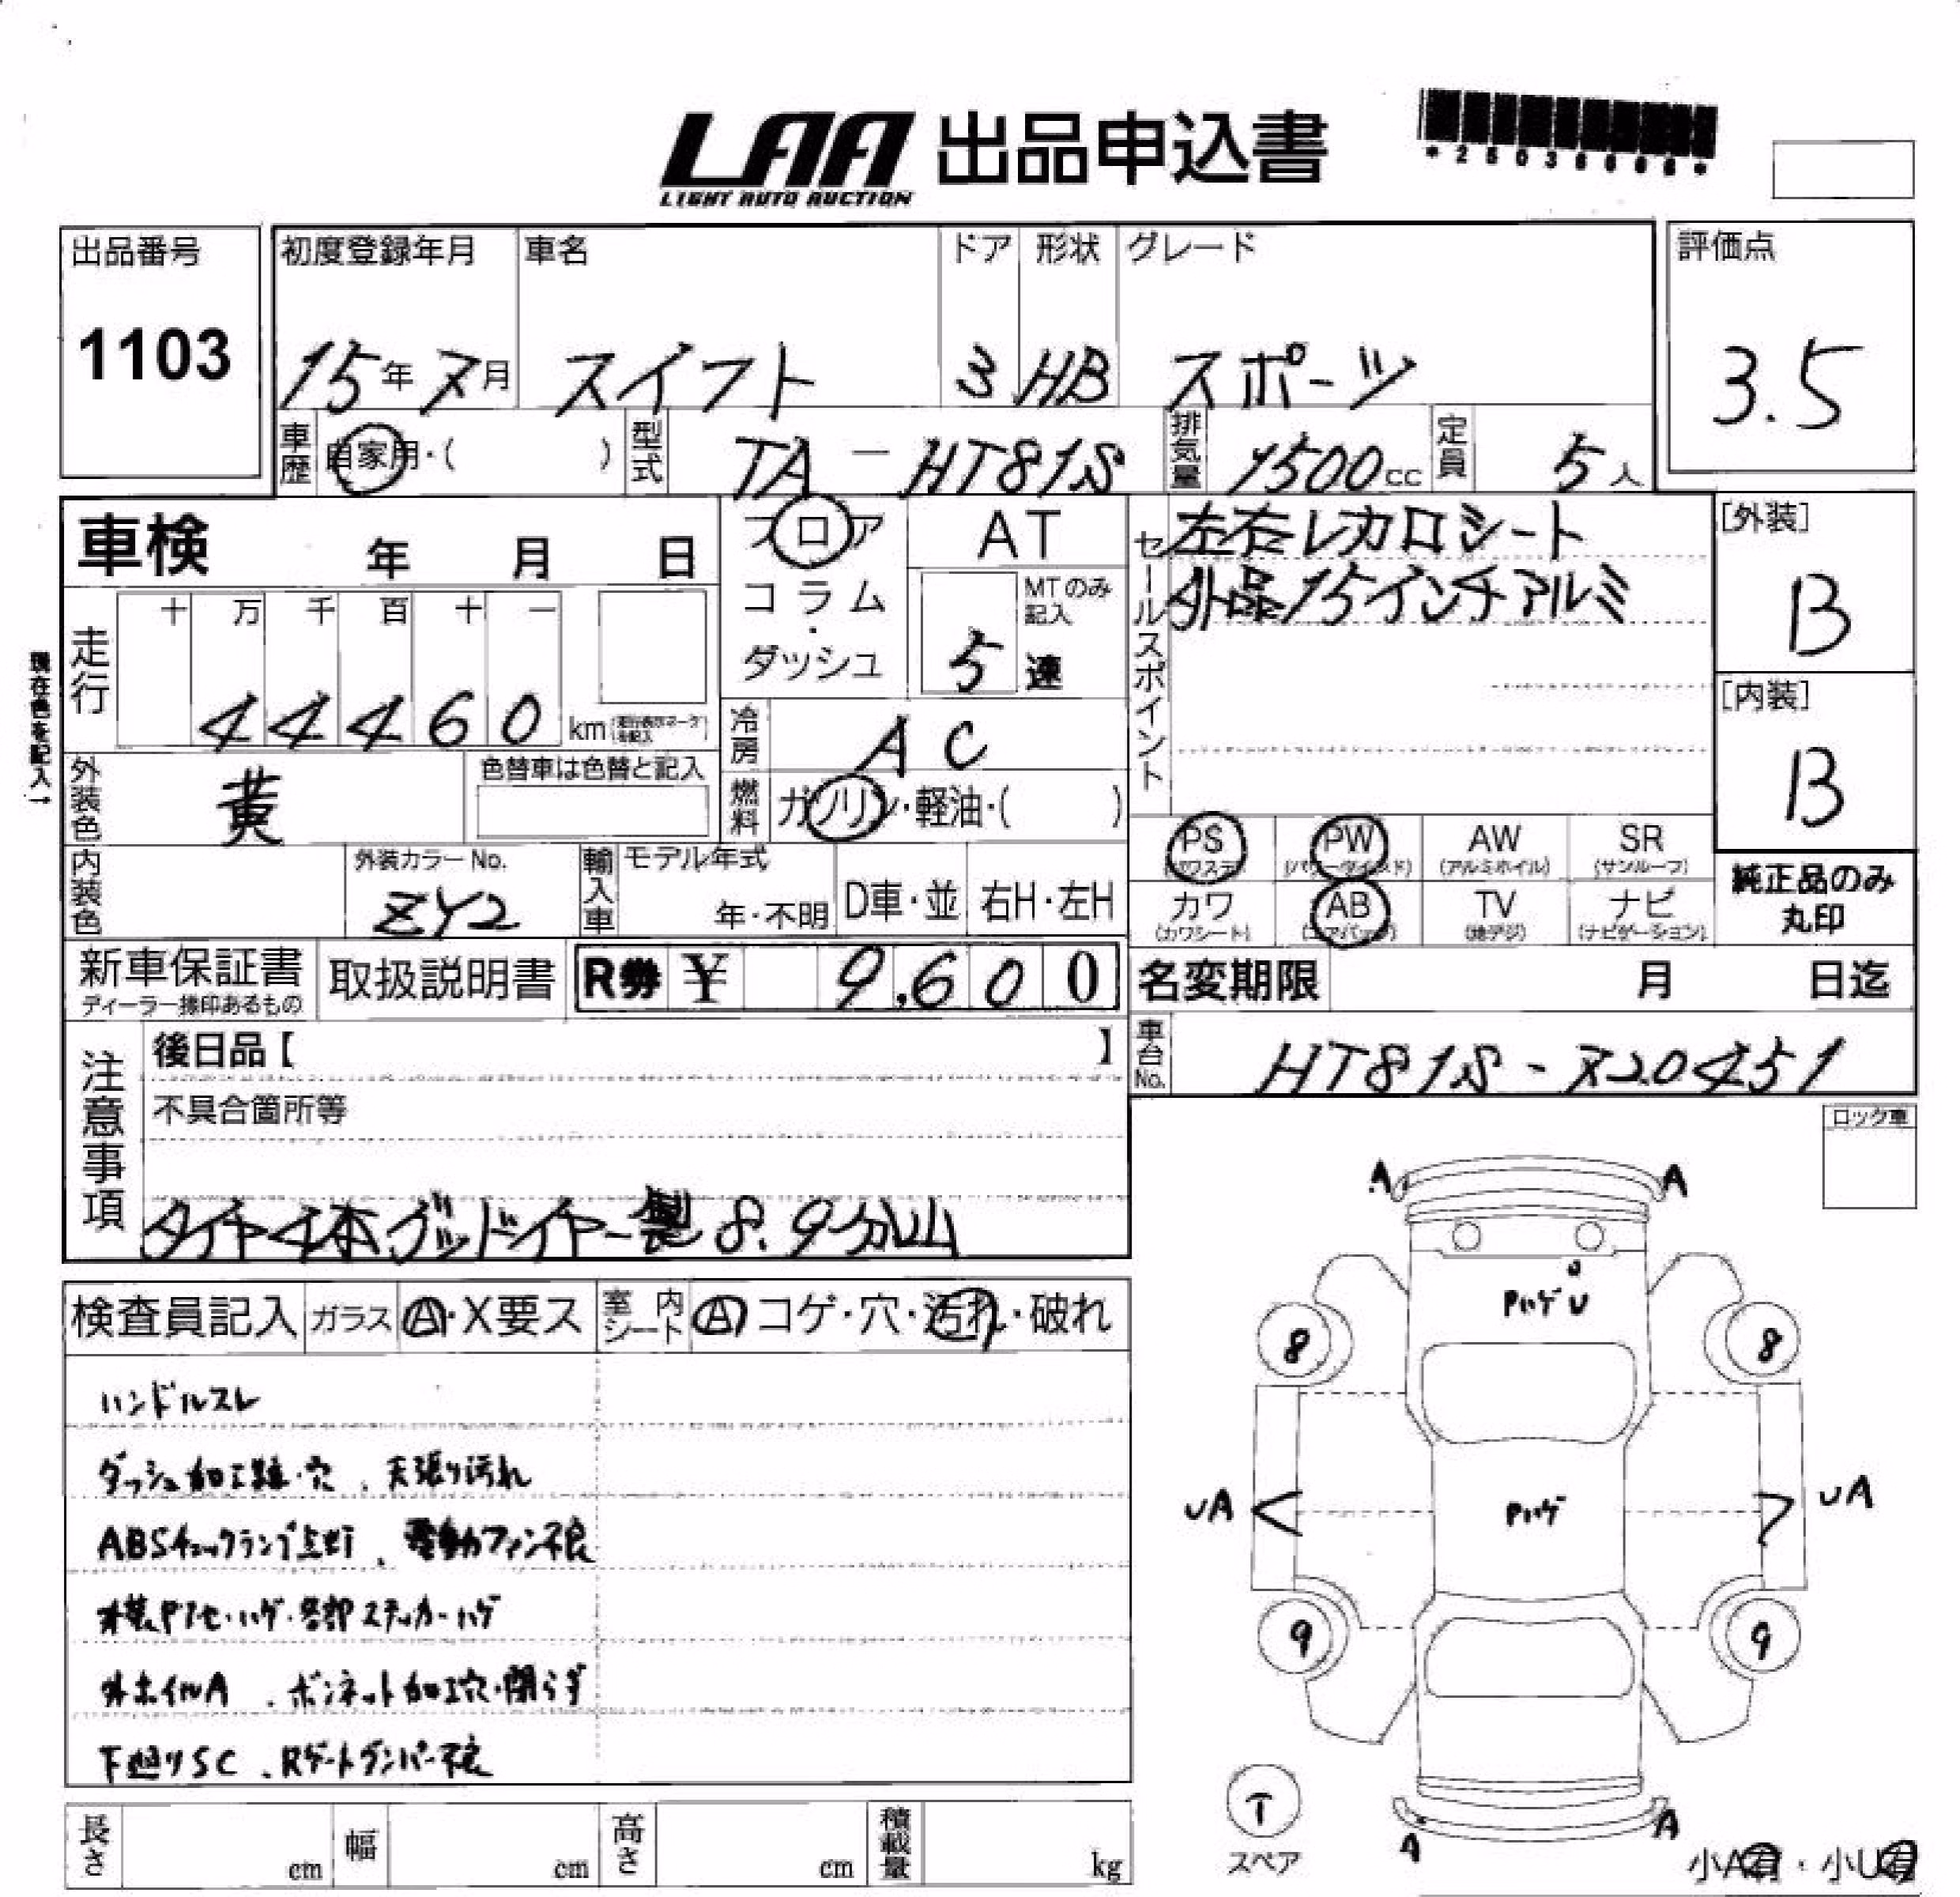 LAA 出品申込書
LIGHT AUTO AUCTION
出品番号
1103
初度登録年月
15年 7月
車名
スイフト
ドア
3
形状
HB
グレード
スポーツ
評価点
3.5
車歴
自家用・( )
型式
TA-HT81S
排気量
1500cc
定員
5人
車検 年 月 日
フロア
コラム・ダッシュ
AT
MTのみ記入
5速
セールスポイント
左右レカロシート
外品15インチアルミ
[外装]
B
[内装]
B
現在色を記入→
走行
十 万 千 百 十 一
44460 km
冷房
AC
外装色
黄
色替車は色替と記入
燃料
ガソリン・軽油・( )
PS
(パワステ)
PW
(パワーウインド)
AW
(アルミホイル)
SR
(サンルーフ)
内装色
外装カラーNo.
ZY2
輸入車
モデル年式
年・不明
D車・並
右H・左H
カワ
(カワシート)
AB
(エアバッグ)
TV
(地デジ)
ナビ
(ナビゲーション)
純正品のみ
丸印
新車保証書
ディーラー捺印あるもの
取扱説明書
R券 ¥ 9,600
名変期限 月 日迄
注意事項
後日品【 】
不具合箇所等
タイヤ4本グッドイヤー製 8.9分山
車台No.
HT81S-720451
ロック車
検査員記入
ガラス
A・X要ス
室内シート
A コゲ・穴・汚れ・破れ
ハンドルスレ
ダッシュ加工跡・穴、天張り汚れ
ABSチェックランプ点灯、電動ファン不良
外装ヤケ・ハゲ・各部ステッカーハゲ
外ホイルA、ボンネット加工穴・閉らず
下廻りSC、Rゲートダンパー不良
A A
U
Pハゲ U
8 8
UA Pハゲ UA
9 9
T
スペア
A A
小A有・小U有
長さ cm
幅 cm
高さ cm
積載量 kg